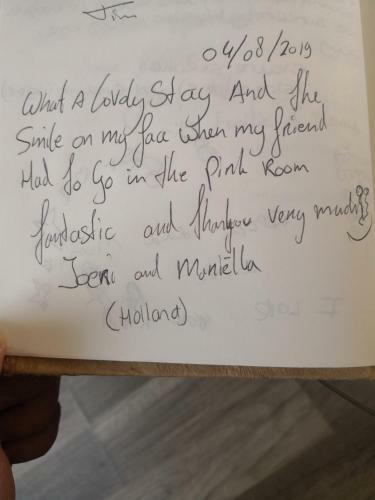 Jim
04/08/2019
What A Lovely Stay And the
Smile on my face when my friend
Had to Go in the Pink Room
fantastic and thankyou very much!!
Joeri and Mariëlla
(Holland)